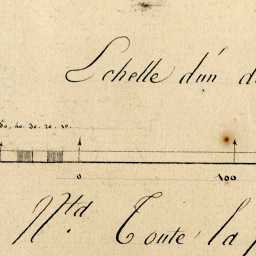 Echelle d'un d
50. 40. 30. 20. 10.
0 100
Nta Toute la